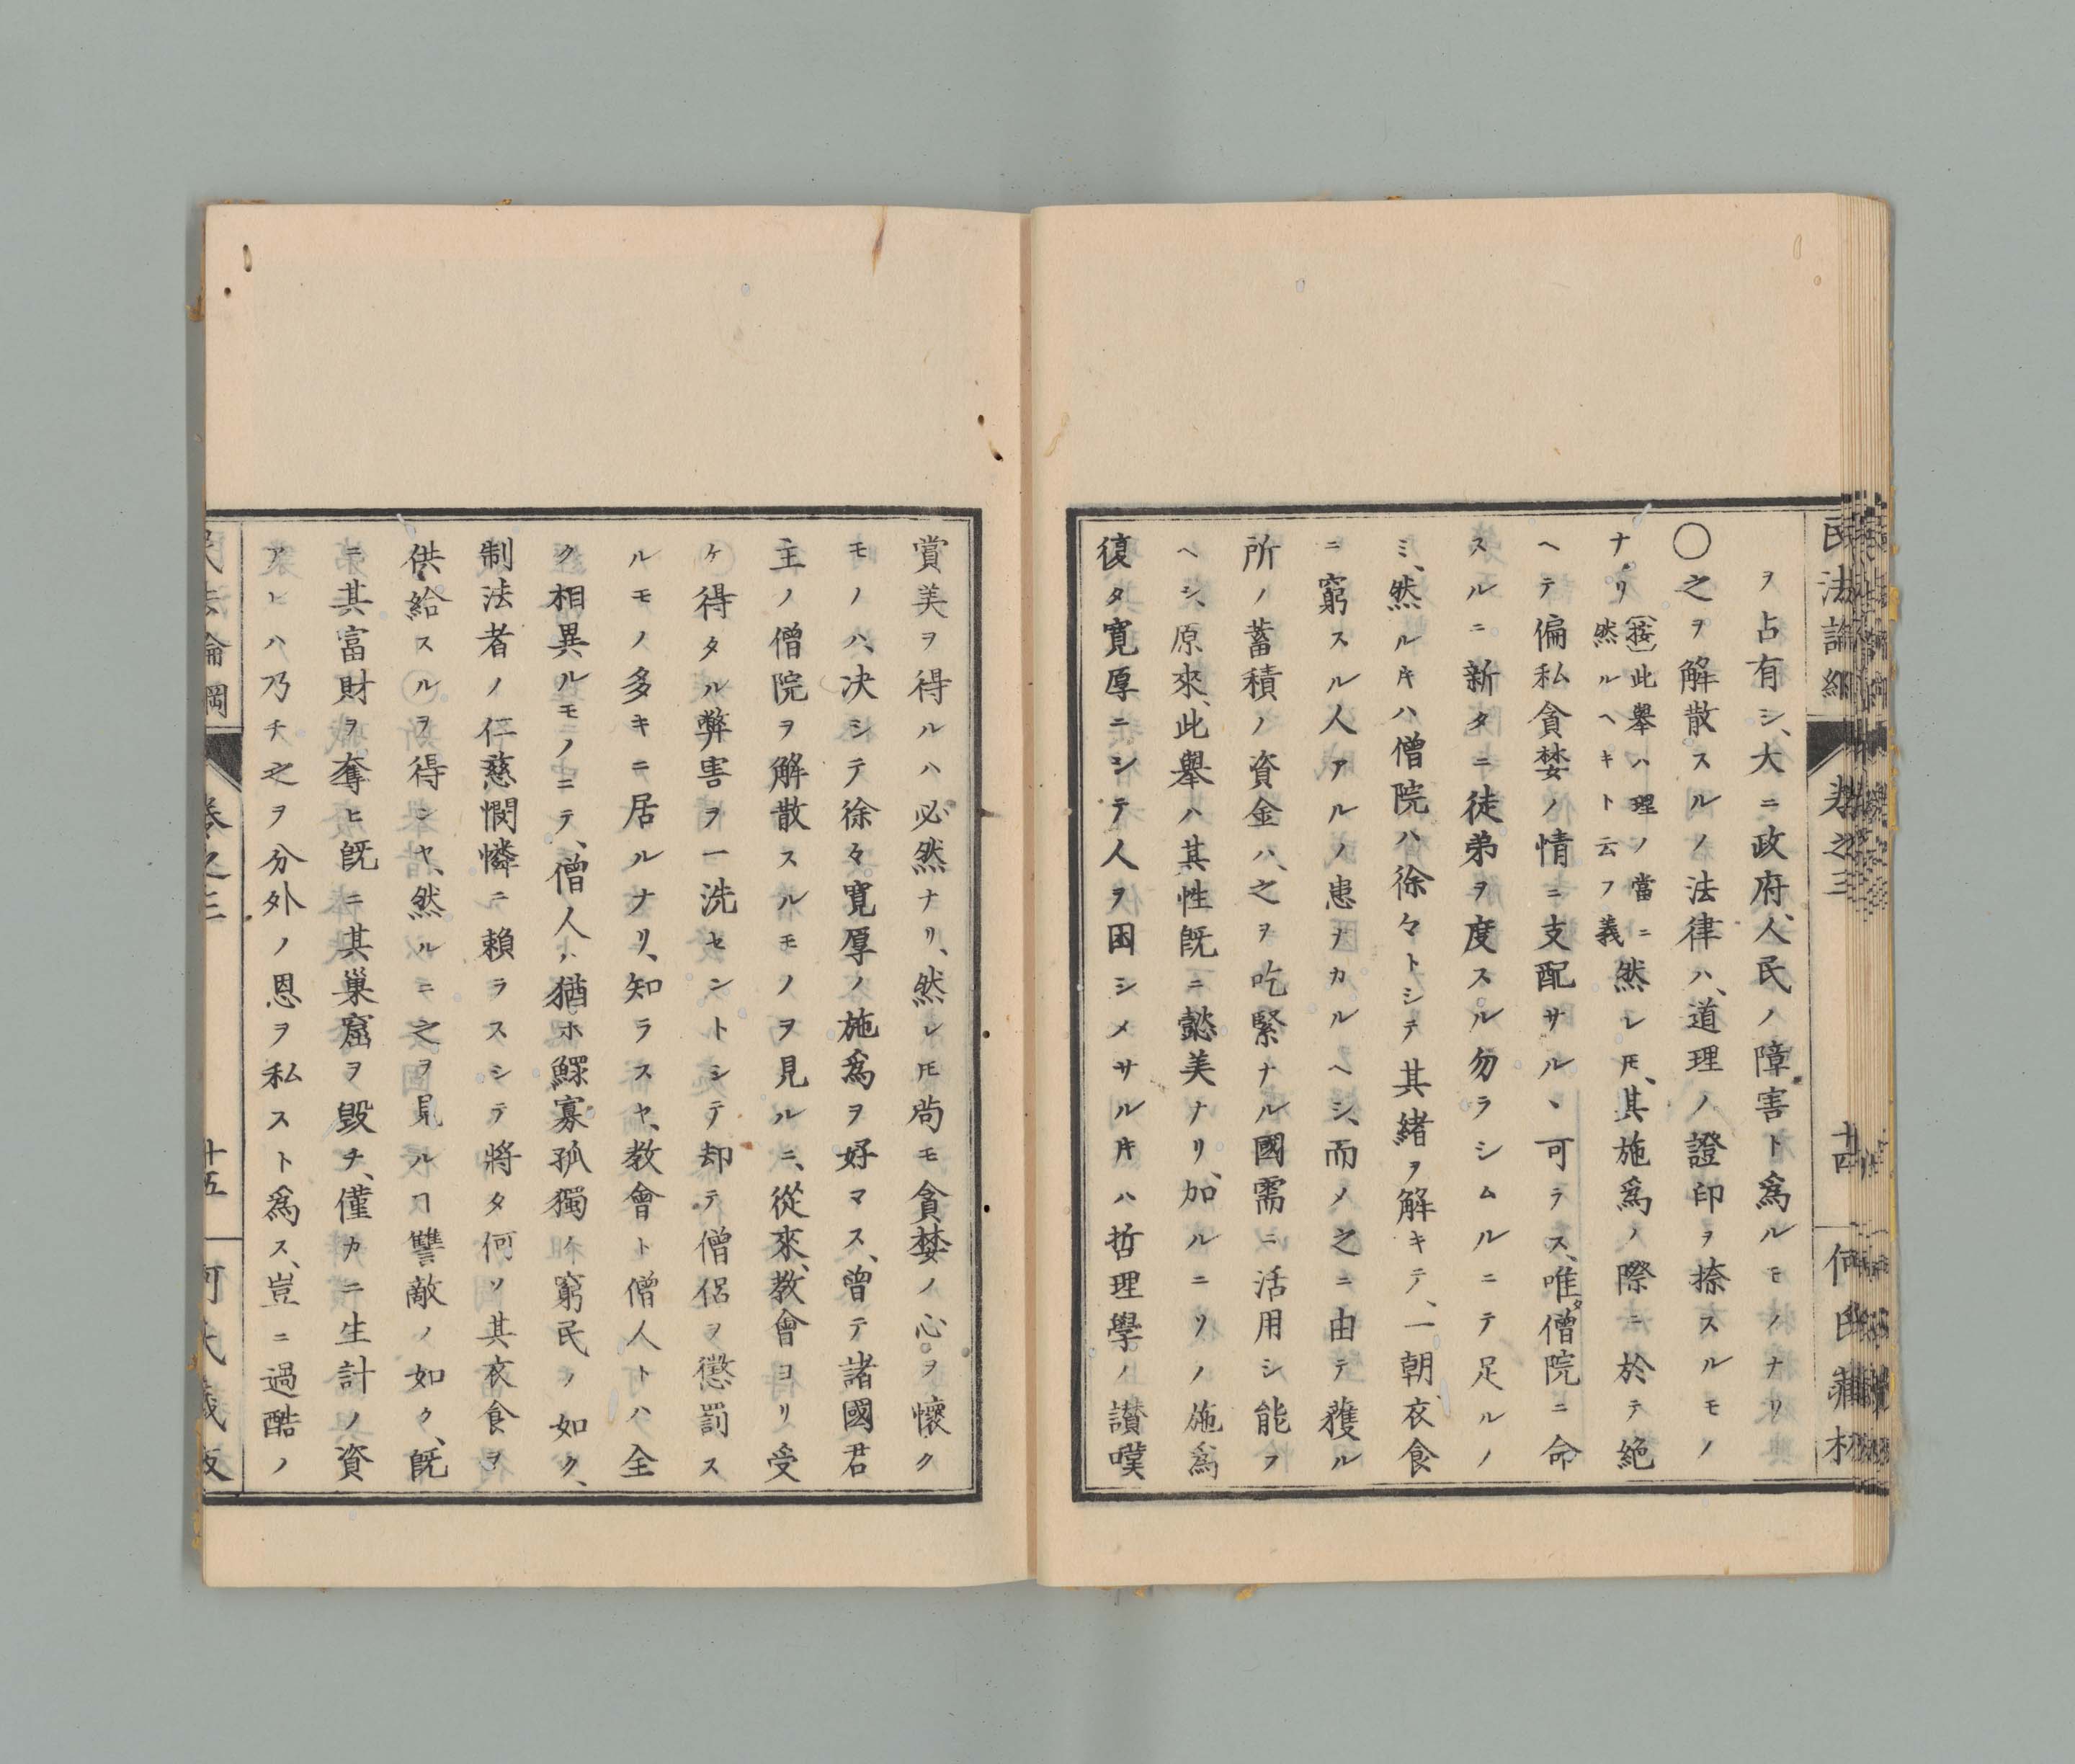 民法論綱 卷之三 十四 何氏藏板
ヲ占有シ、大ニ政府人民ノ障害ト爲ルモノナリ
〇之ヲ解散スルノ法律ハ、道理ノ證印ヲ捺スルモノ
ナリ（按）此擧ハ理ノ當ニ然ルヘキト云フ義然レ𪜈、其施爲ノ際ニ於テ絶
ヘテ偏私貪婪ノ情ニ支配サル丶可ラス、唯僧院ニ命
スルニ新タニ徒弟ヲ度スル勿ラシムルニテ足ルノ
ミ、然ル𪜈ハ僧院ハ徐々トシテ其緒ヲ解キテ、一朝衣食
ニ窮スル人アルノ患ナカルヘシ、而〆之ニ由テ獲ル
所ノ蓄積ノ資金ハ、之ヲ吃緊ナル國需ニ活用シ能フ
ヘシ、原來、此擧ハ其性既ニ懿美ナリ、加ルニソノ施爲
復タ寛厚ニシテ人ヲ困シメサル𪜈ハ哲理學ノ讃嘆
賞美ヲ得ルハ必然ナリ、然レ𪜈苟モ貪婪ノ心ヲ懷ク
モノハ、决シテ徐々寛厚ノ施爲ヲ好マス、曾テ諸國君
主ノ僧院ヲ解散スルモノヲ見ルニ、從來、教會ヨリ受
ケ得タル弊害ヲ一洗センドシテ却テ僧侶ヲ懲罰ス
ルモノ多キニ居ルナリ、知ラスヤ、教會ト僧人トハ全
ク相異ルモノニテ、僧人ハ猶ホ鰥寡孤獨ノ窮民ノ如ク、
制法者ノ仁慈憫憐ニ賴ラスシテ將タ何ソ其衣食ヲ
供給スルヲ得ンヤ、然ルニ之ヲ見ルヿ讐敵ノ如ク、既
ニ其富財ヲ奪ヒ既ニ其巢窟ヲ毀チ、僅カニ生計ノ資
アレハ乃チ之ヲ分外ノ恩ヲ私スト爲ス、豈ニ過酷ノ
民法論綱 卷之三 十五 何氏藏板